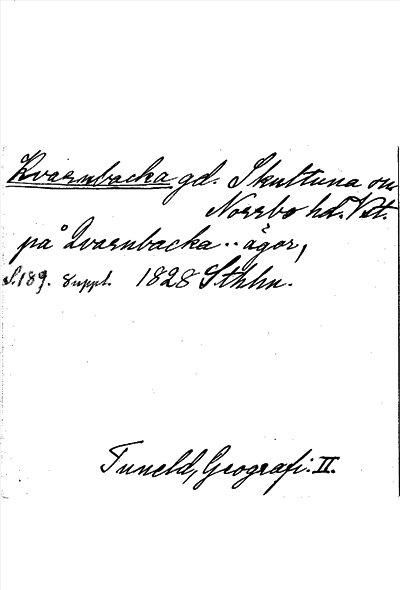 Kvarnbacka gd. Skultuna sn
Norrbo hd. Vstl.
på Qvarnbacka .. ägor,
S.189. Suppl. 1828 Sthlm.
Tuneld, Geografi. II.